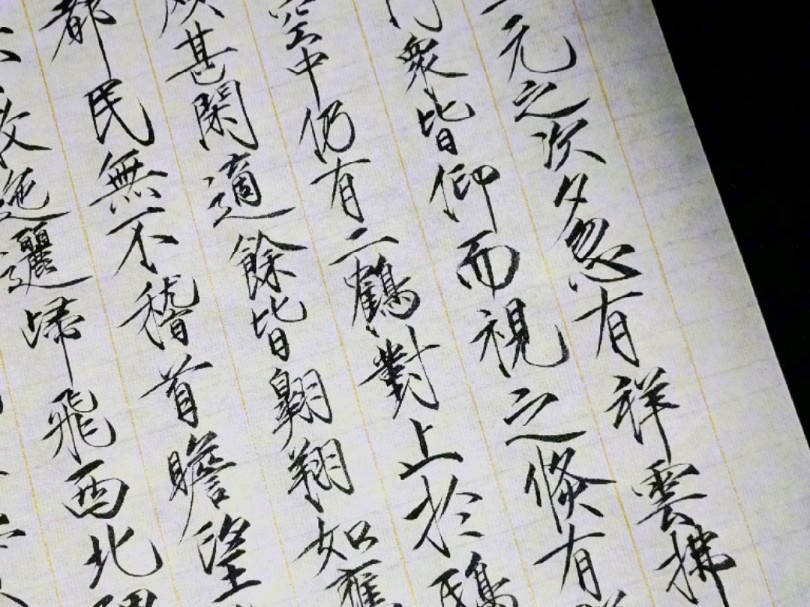 元之次夕忽有祥雲拂
眾皆仰而視之倏有
空中仍有二鶴對上於鴟
甚閑適餘皆翱翔如應
都民無不稽首瞻望
散迤邐歸飛西北隅